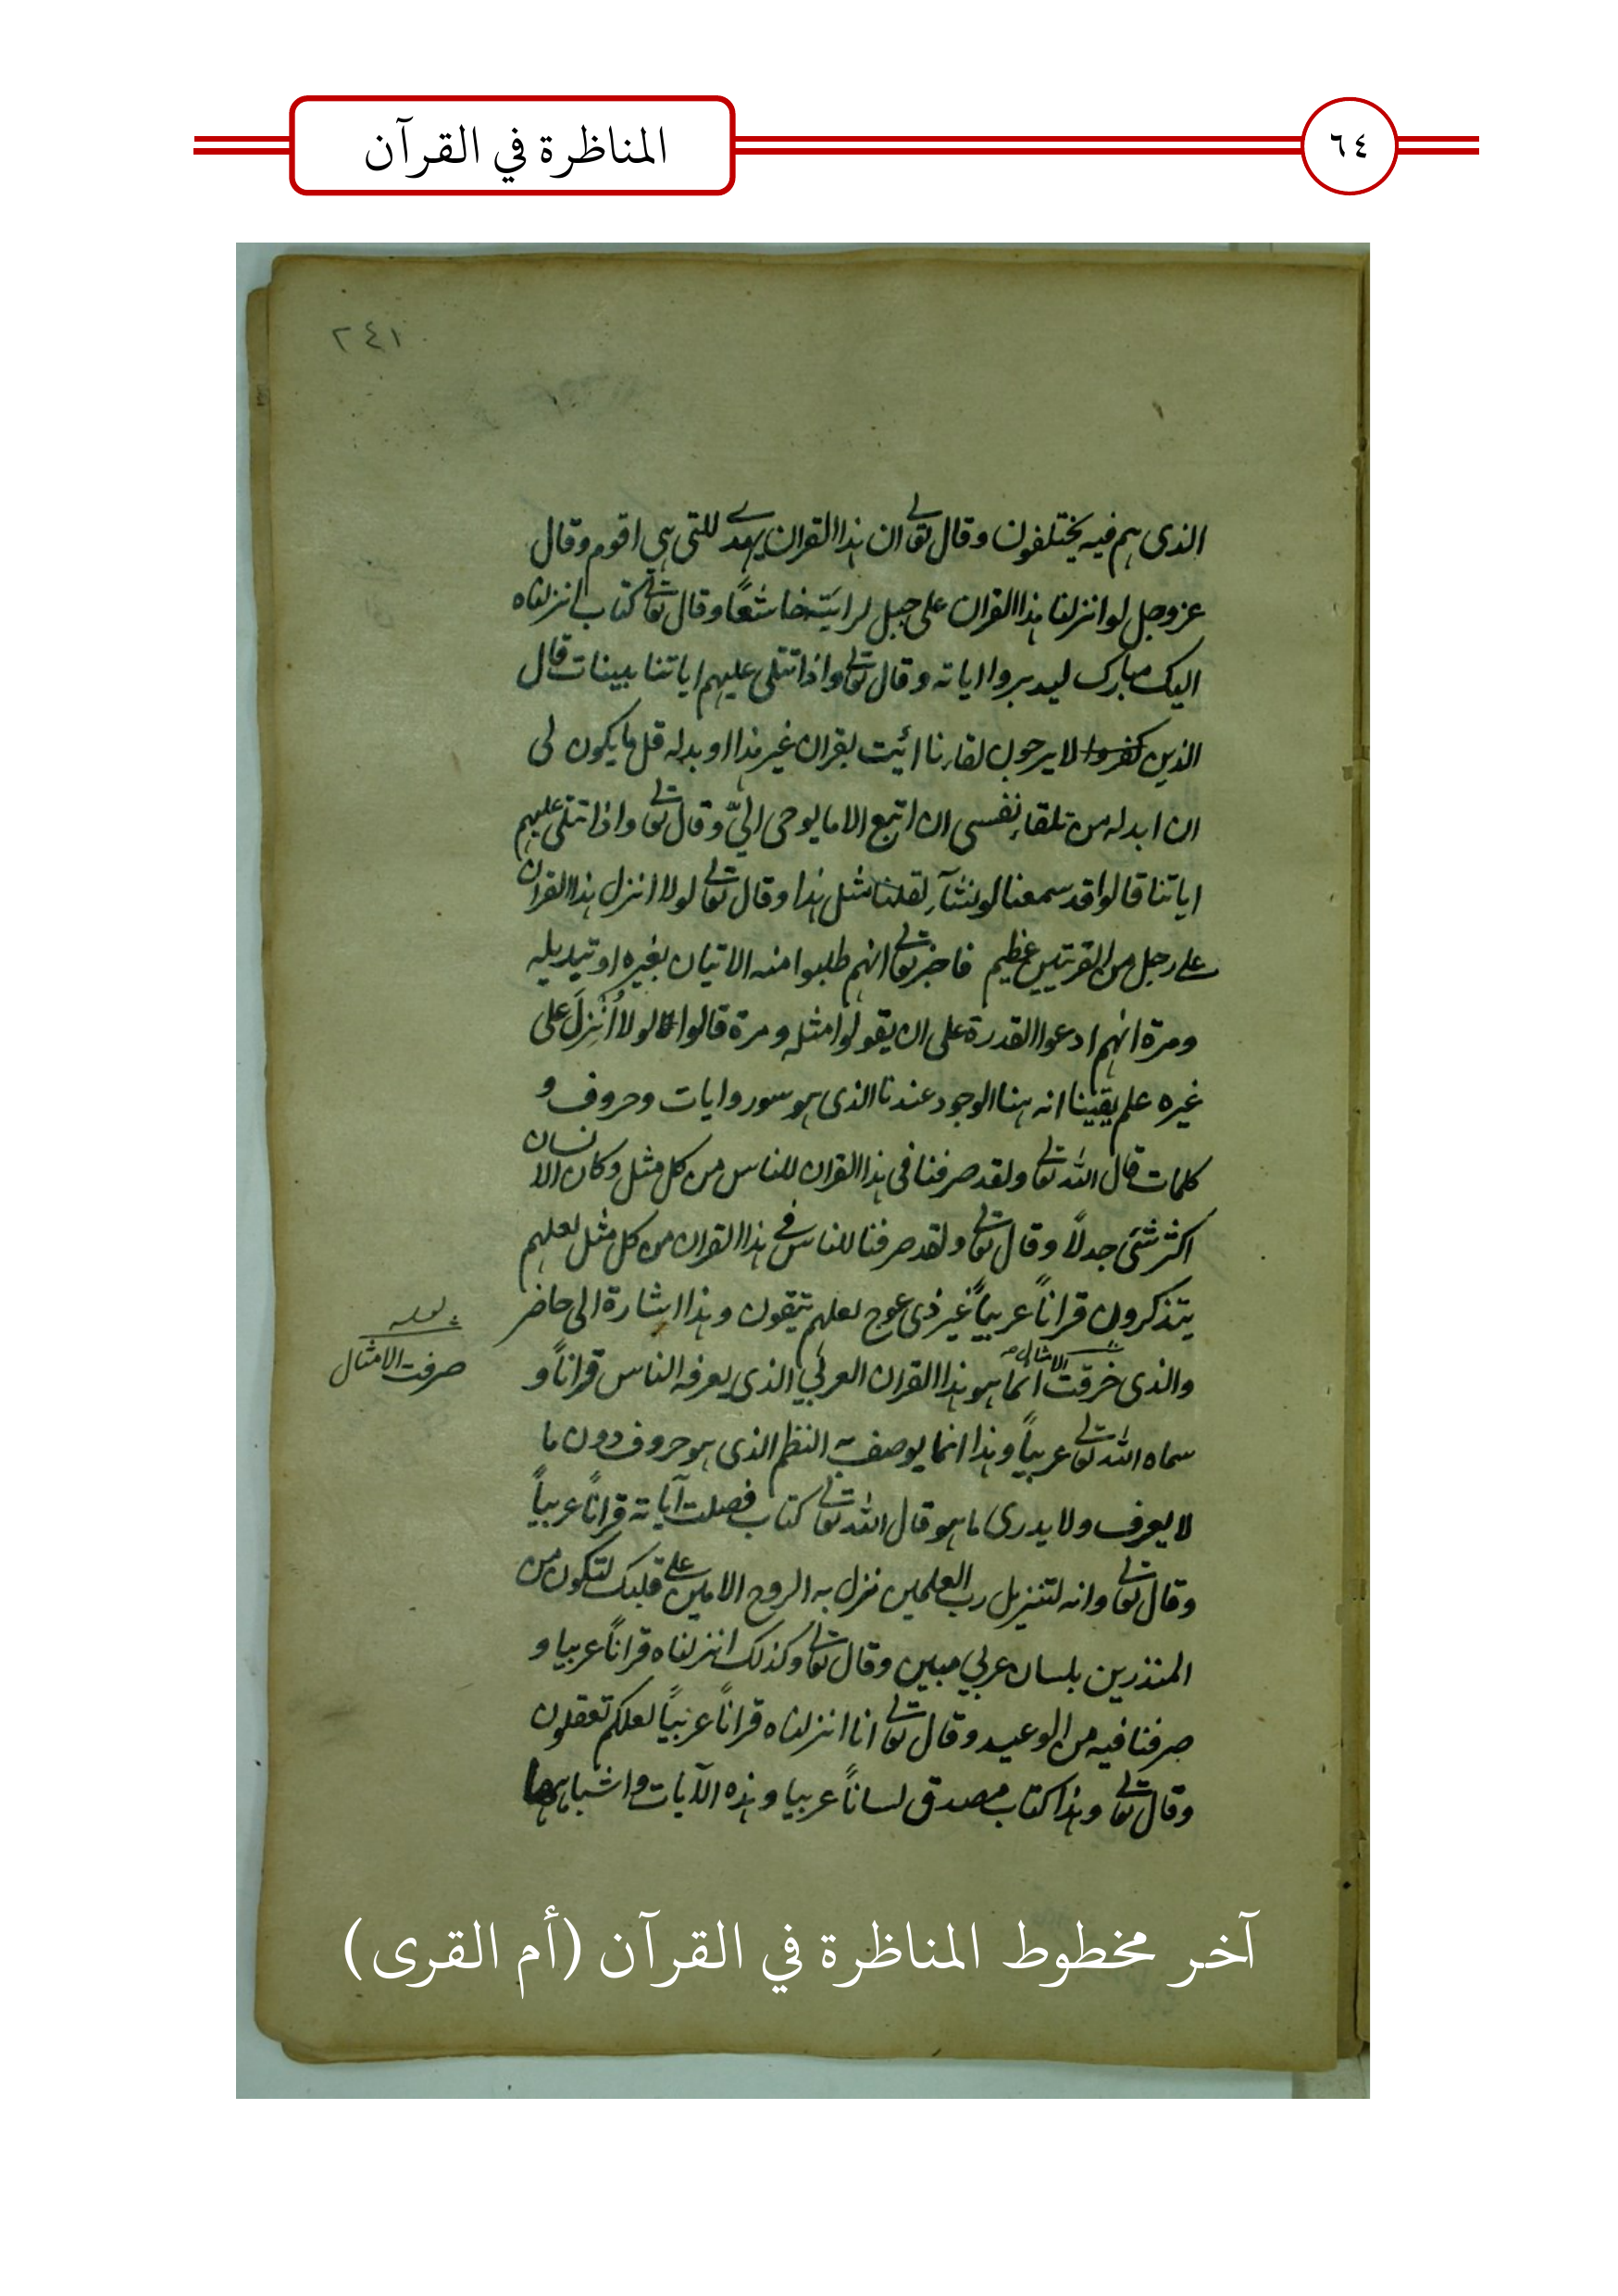 المناظرة في القرآن
٦٤
٢٤١
الذى هم فيه يختلفون وقال تعالى ان هذا القران يهدے للتى هي اقوم وقال
عز وجل لو انزلنا هذا القران على جبل لرايته خاشعًا وقال تعالى كتاب انزلناه
اليك مبارك ليدبروا اياته وقال تعالى واذا تتلى عليهم اياتنا بينات قال
الذين كفروا لا يرجون لقاءنا ائيت بقران غير هذا او بدله قل ما يكون لى
ان ابدله من تلقاء نفسى ان اتبع الا ما يوحى اليّ وقال تعالى واذا تتلى عليهم
اياتنا قالوا قد سمعنا لو نشآء لقلنا مثل هذا وقال تعالى لولا انزل هذا القران
على رجل من القريتين عظيم فاخبر تعالى انهم طلبوا منه الاتيان بغيره او تبديله
ومرة انهم ادعوا القدرة على ان يقولوا مثله ومرة قالوا لولا أُنْزِلَ على
غيره علم يقينا انه هنا الوجود عندنا الذى هو سور وايات وحروف و
كلمات قال الله تعالى ولقد صرفنا فى هذا القران للناس من كل مثل وكان الانسان
اكثر شئ جدلاً وقال تعالى ولقد صرفنا للناس فے هذا القران من كل مثل لعلهم
يتذكرون قراناً عربياً غير ذى عوج لعلهم يتقون وهذا اشارة الى حاضر
والذى خرقت الامثال انما هو هذا القران العربي الذى يعرفه الناس قراناً و
لعله
صرفت الامثال
سماه الله تعالى عربياً وهذا انما يوصف به النظم الذى هو حروف دون ما
لا يعرف ولا يدرى ما هو قال الله تعالى كتاب فصلت آياته قراناً عربياً
وقال تعالى وانه لتنزيل رب العلمين نزل به الروح الامين على قلبك لتكون من
المنذرين بلسان عربي مبين وقال تعالى وكذلك انزلناه قراناً عربيا و
صرفنا فيه من الوعيد وقال تعالى انا انزلناه قراناً عربياً لعلكم تعقلون
وقال تعالى وهذا كتاب مصدق لساناً عربيا وهذه الآيات واشباهها
آخر مخطوط المناظرة في القرآن (أم القرى)